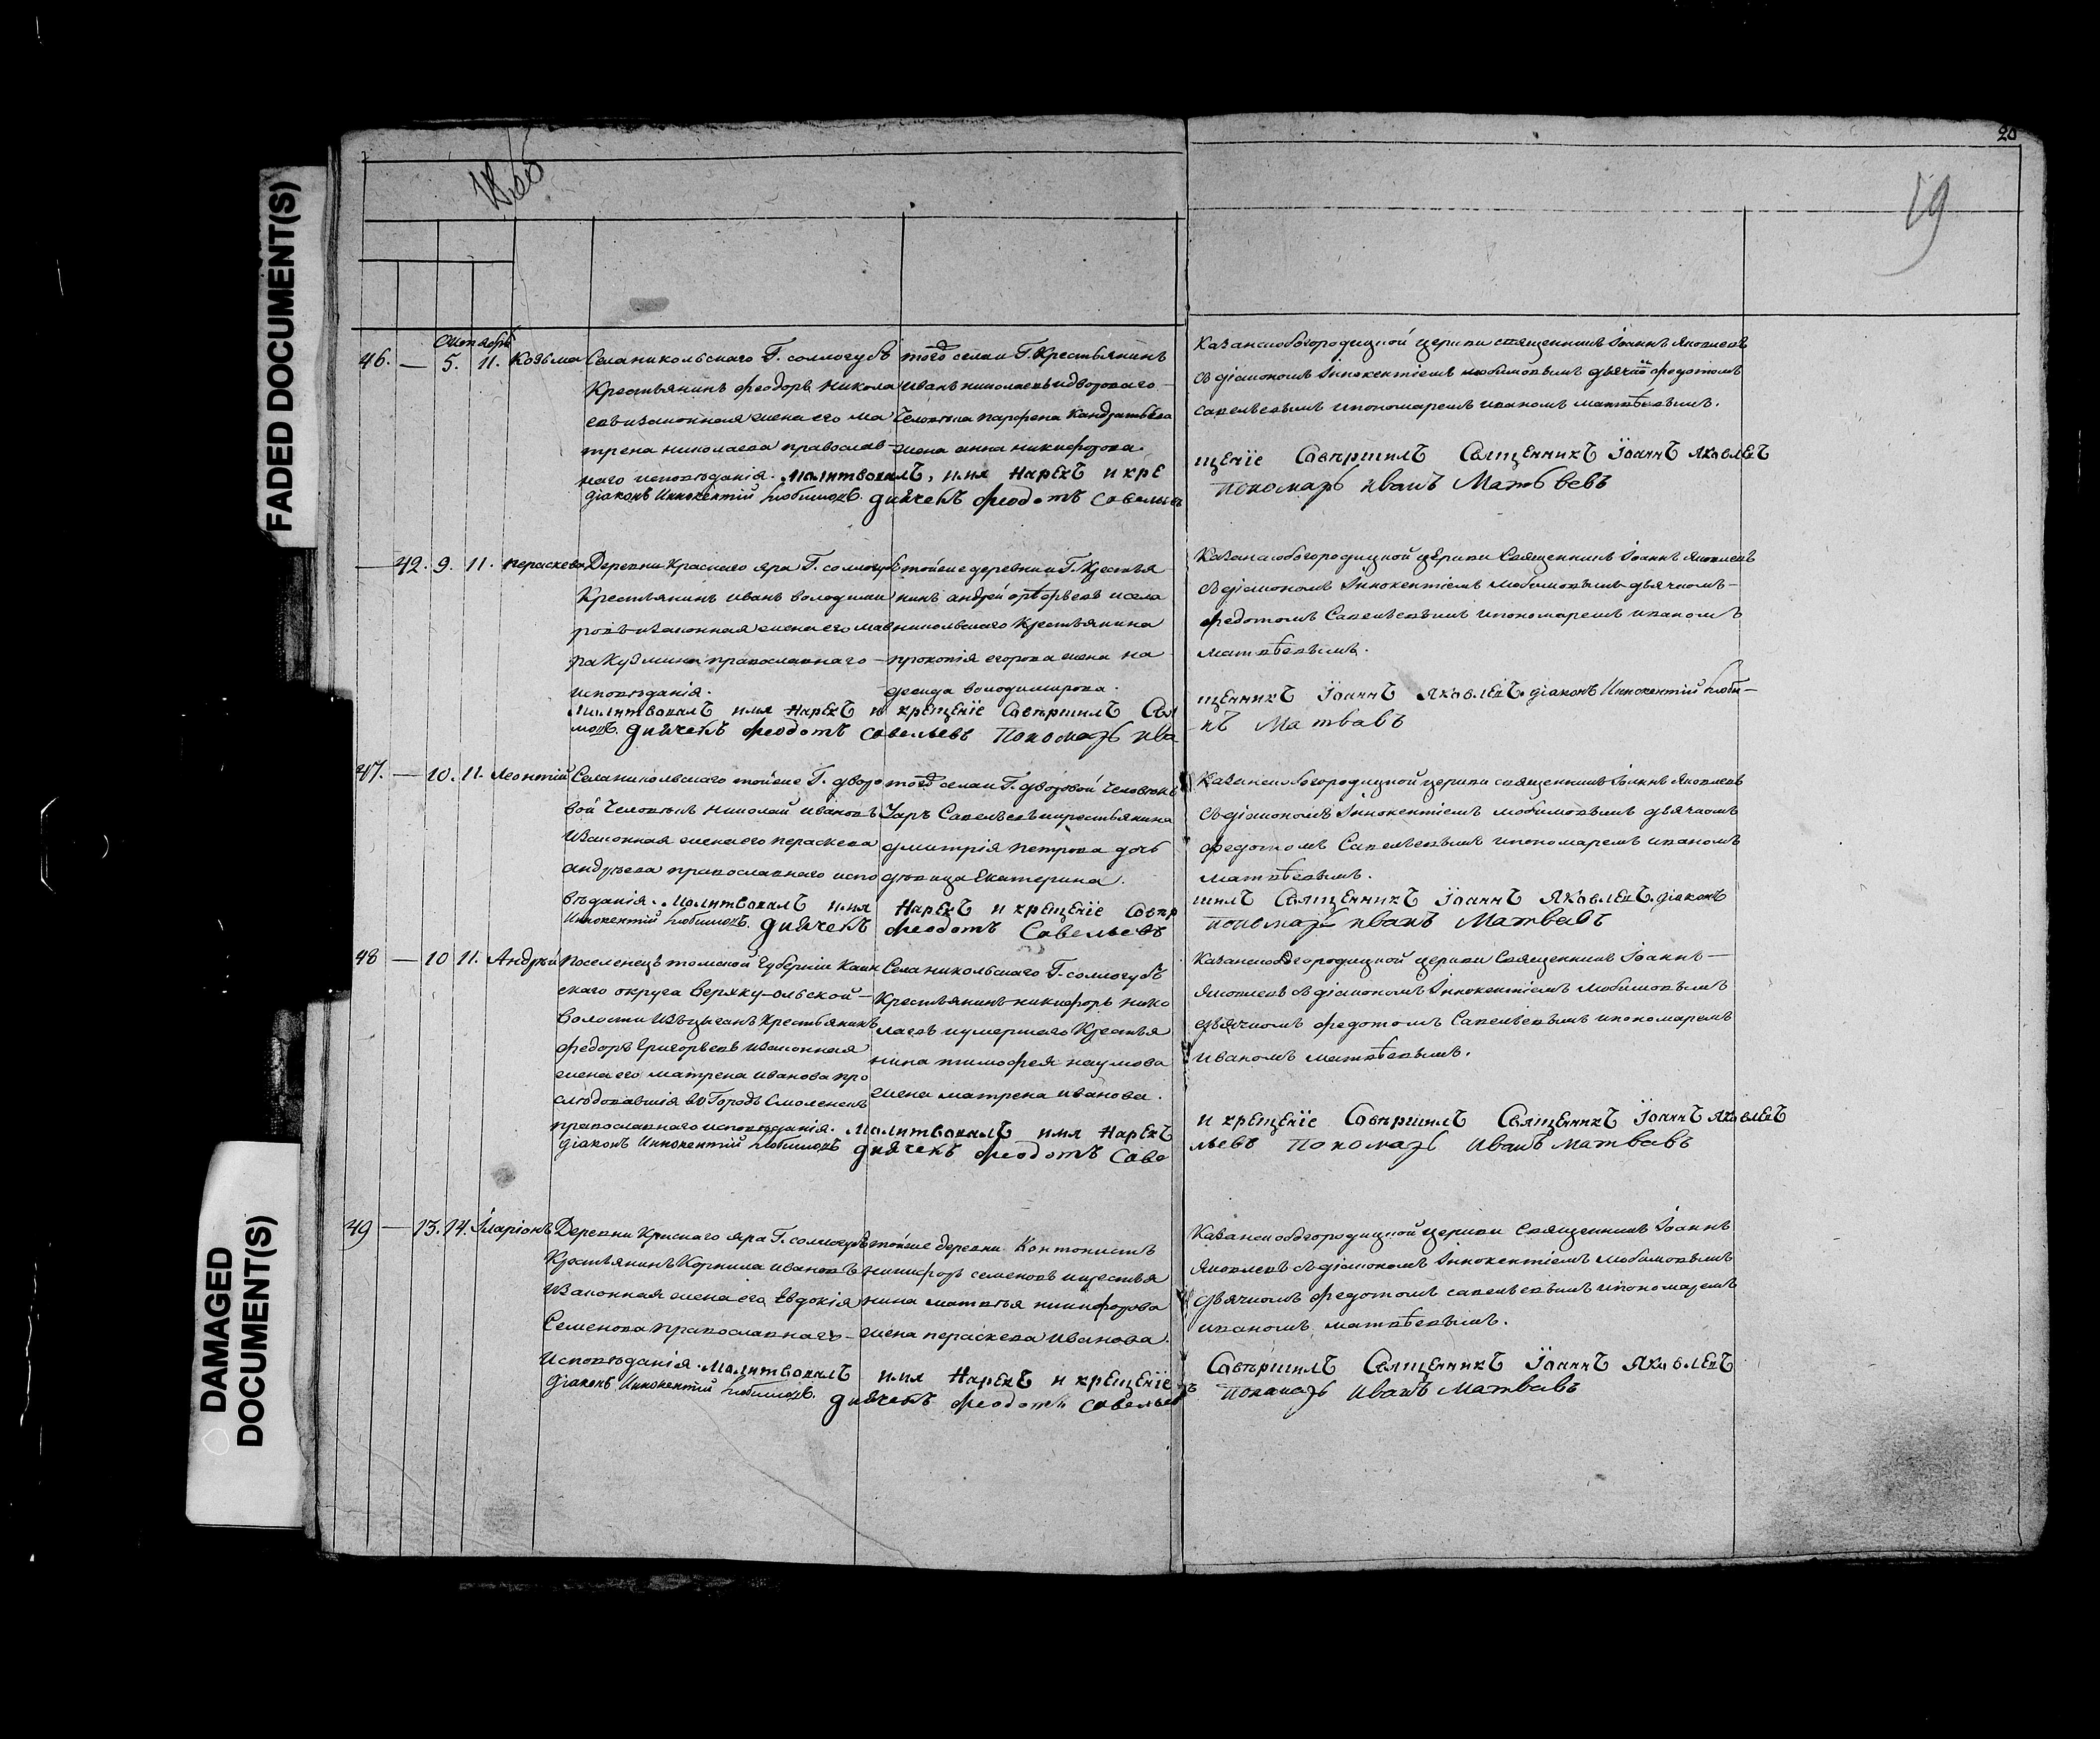 FADED DOCUMENT(S)
DAMAGED DOCUMENT(S)
20
19
Октябрь
46. — 5. 11. Козьма
Села никольскаго Г. соллогубъ
Крестьянинъ феодоръ никола
евъ изаконная жена его ма
трена николаева православ-
наго исповѣданія.
того села и Г. Крестьянинъ
иванъ николаевъ идвороваго
человѣка парфена Кандратьева
жена анна никифорова.
Казанскобогородицкой церкви священникъ Іоаннъ Яковлевъ
съ діакономъ Іннокентіемъ любимовымъ дьячкомъ федотомъ
савельевымъ ипономаремъ иваномъ матвѣевымъ.
молитвовалъ, имя нарекъ и кре
щенїе совершилъ Священникъ Їоаннъ Яковлевъ
діаконъ Иннокентій Любимовъ. дьячекъ феодотъ Савельевъ
пономарь иванъ Матвѣевъ
— 42. 9. 11. параскева
Деревни Краснаго яра Г. соллогубъ
Крестьянинъ иванъ володими
ровъ изаконная жена его мав
ра Кузмина православнаго —
исповѣданія.
тойже деревни и Г. Крестья
нинъ андрей ефьевъ исела
никольскаго Крестьянина
прокопія егорова жена на
дежда володимирова.
Казанскобогородицкой церкви Священникъ Іоаннъ Яковлевъ
съ діакономъ Іннокентіемъ любимовымъ дьячкомъ —
федотомъ Савельевымъ ипономаремъ иваномъ
матвѣевымъ.
Молитвовалъ имя нарекъ и крещенїе совершилъ Свя
щенникъ Їоаннъ Яковлевъ. діаконъ Иннокентій Люби—
мовъ. дьячекъ феодотъ савельевъ Пономарь ива
нъ Матвавъ
47. — 10. 11. Леонтій
Села никольскаго тойже Г. дворо
вой человѣкъ николай ивановъ
изаконная жена его параскева
андреева православнаго испо
вѣданія.
того села и Г. дворовой человѣкъ
Уаръ Савельевъ икрестьянина
дмитрія петрова дочь
дѣвица Екатерина.
Казанскобогородицкой церкви священникъ Іоаннъ Яковлевъ
съ діакономъ Іннокентіемъ любимовымъ дьячкомъ
федотомъ Савельевымъ ипономаремъ иваномъ
матвѣевымъ.
Молитвовалъ имя нарекъ и крещенїе совер
шилъ Священникъ Їоаннъ Яковлевъ. діаконъ
Иннокентій Любимовъ. дьячекъ феодотъ Савельевъ
пономарь иванъ Матвавъ
48 — 10 11. Андрей
Поселенецъ томской губерніи Каин
скаго округа верхку-ольской —
волости изъ цыганъ Крестьянинъ
федоръ Григорьевъ изаконная
жена его матрена иванова про
слѣдовавшія въ Городъ Смоленскъ
православнаго исповѣданія.
Села никольскаго Г. соллогубъ
Крестьянинъ никифоръ нико
лаевъ иумершаго Крестья
нина тимофея наумова
жена матрена иванова.
Казанскобогородицкой церкви Священникъ Іоаннъ —
Яковлевъ съ діакономъ Іннокентіемъ любимовымъ
дьячкомъ федотомъ Савельевымъ ипономаремъ
иваномъ матвѣевымъ.
Молитвовалъ имя нарекъ
и крещенїе совершилъ Священникъ Їоаннъ Яковлевъ
діаконъ Иннокентій Любимовъ дьячекъ феодотъ Саве
льевъ Пономарь Иванъ матвавъ
49 — 13. 14. Іларіонъ
Деревни Краснаго яра Г. соллогубъ
Крестьянинъ Корнила ивановъ
изаконная жена его Евдокія
Семенова православнаго —
Исповѣданія.
тойже деревни Контонистъ
никифоръ семеновъ икрестья
нина матвѣя никифорова
жена параскева иванова.
Казанскобогородицкой церкви Священникъ Іоаннъ
Яковлевъ съ діакономъ Іннокентіемъ любимовымъ
дьячкомъ федотомъ савельевымъ ипономаремъ
иваномъ матвѣевымъ.
Молитвовалъ имя нарекъ и крещенїе
совершилъ Священникъ Їоаннъ Яковлевъ
діаконъ Иннокентій Любимовъ. дьячекъ феодотъ савельев
ъ пономарь иванъ матвавъ